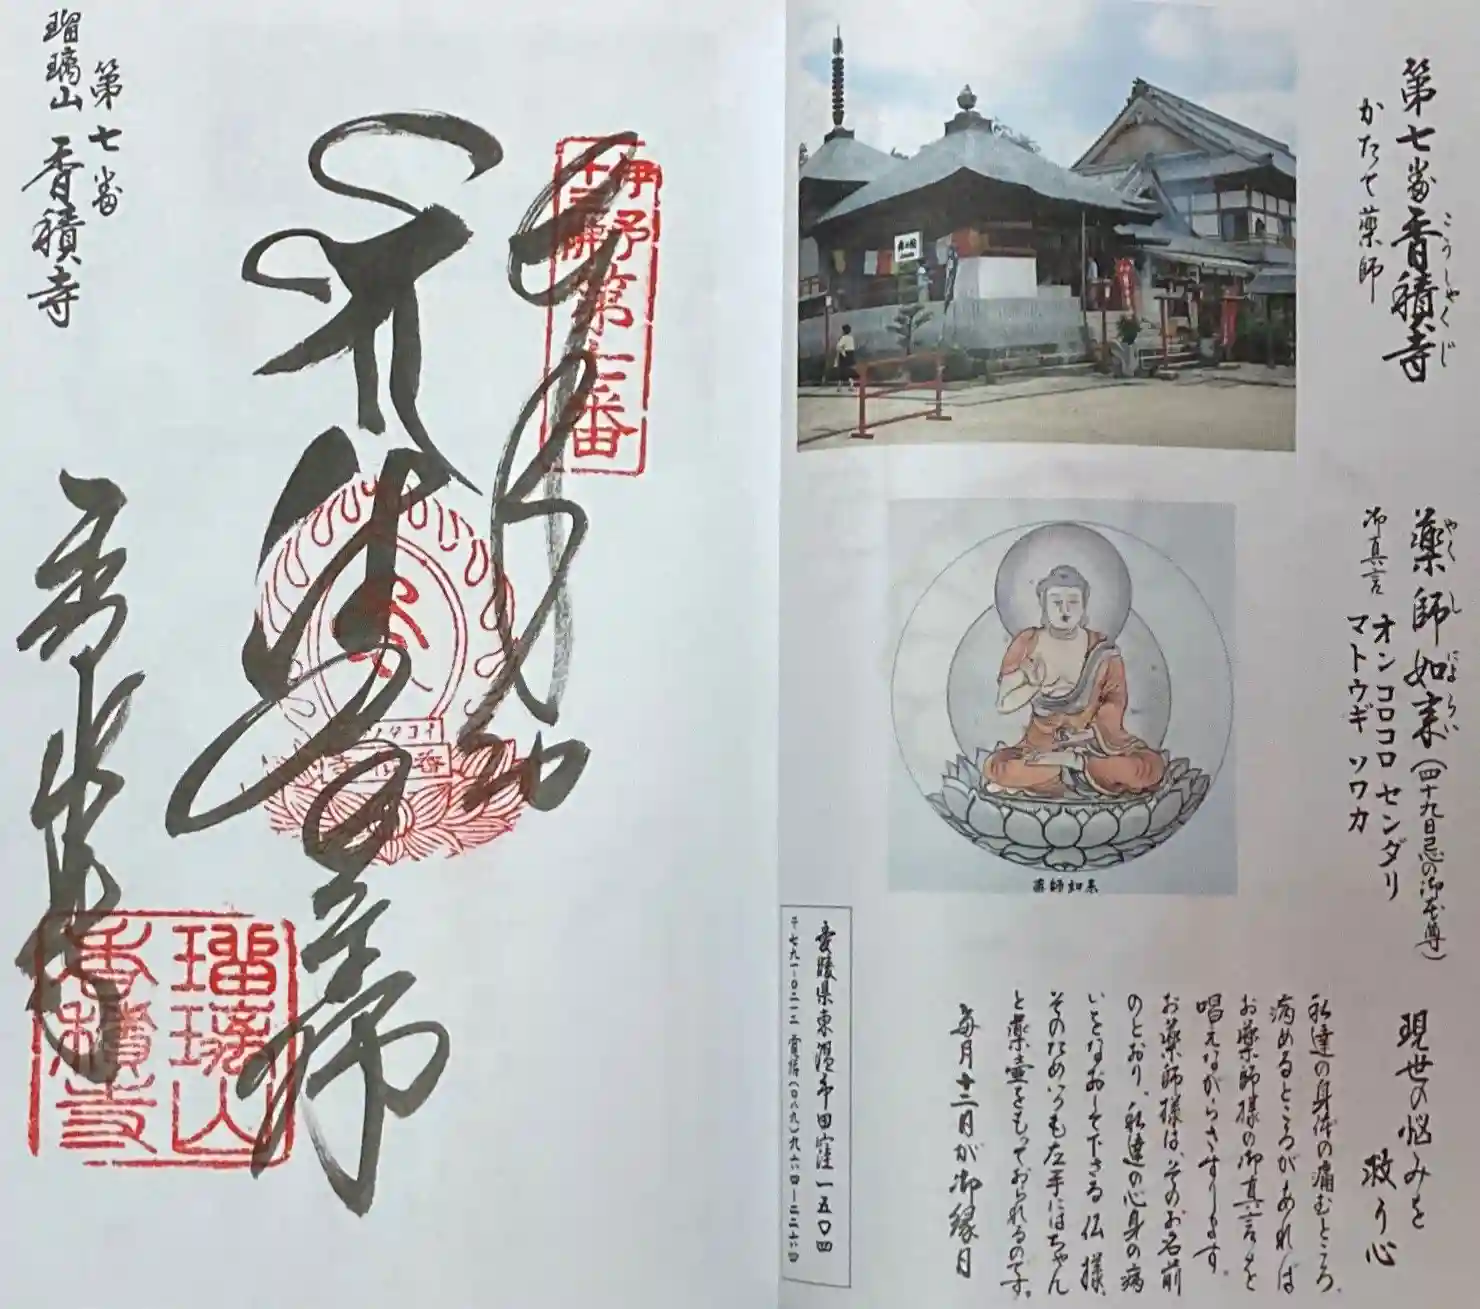 第七番 香積寺
こうしゃくじ
かたて薬師
薬師如来(四十九日忌の御本尊)
やくしにょらい
御真言
オンコロコロ センダリ
マトウギ ソワカ
現世の悩みを
救う心
私達の身体の痛むところ、
病めるところがあれば
お薬師様の御真言をと
唱えながらさすります。
お薬師様は、そのお名前
のとおり、私達の心身の病
いをなおして下さる仏様、
そのためいつも左手にはちゃん
と薬壷をもっておられるのです。
毎月十二日が御縁日
薬師如来
愛媛県東温市田窪一五〇四
〒七九一-〇二一三 電話(〇八九)九六四-二二六四
伊予
十三佛
第七番
奉拝
薬師
香積寺
瑠璃山
香積寺
第七番
瑠璃山 香積寺